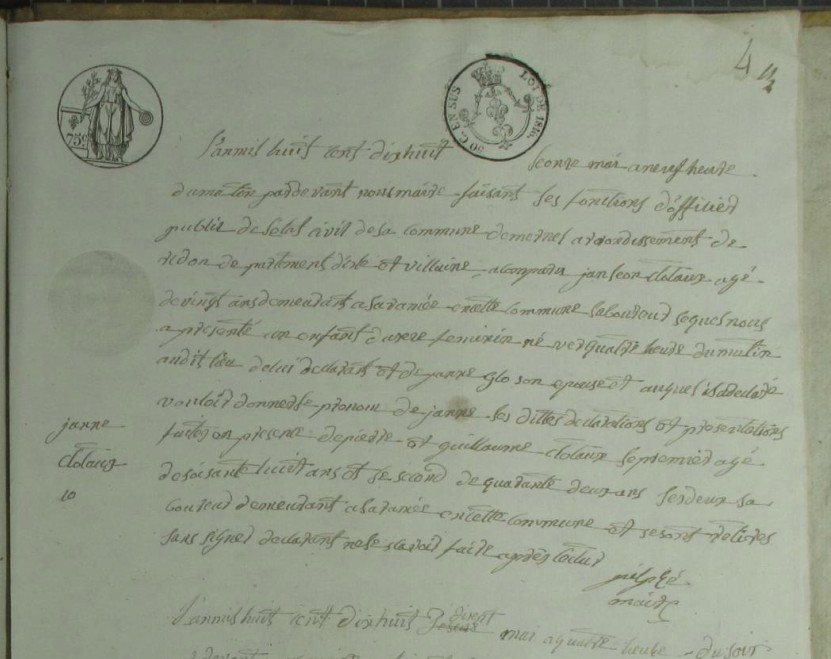 4
75c
50 C. EN SUS
LOI DE 1816.
L'an mil huit cent dix huit le onze mai a neuf heure
du matin par devant nous maire faisant les fonctions d'officier
public de l'etat civil de la commune de mernel arrondissement de
redon departement d'ille et villaine a comparu jan leon clolaux agé
de vingt ans demeurant a la ramée en cette commune laboureur lequel nous
a presenté un enfant d sexe feminin né ver quatre heure du matin
audit lieu de lui declarant et de janne glo son epouse et auquel il a declaré
vouloir donner le prenom de janne les dittes declarations et presentations
faites en presence de pierre et guillaume clolaux le premier agé
de soisante huit ans et le second de quarante deux ans les deux la
boureur demeurant a la ramée en cette commune et se sont retirés
sans signer declarant ne le savoir faire après lecture
janne
clolaux
10
maire
L'an mil huit cent dix huit mai a quatre heure du soir